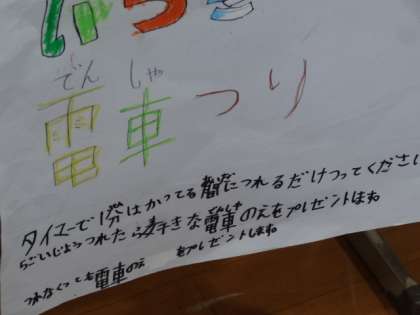 でん しゃ
電車つり
タイマーで1分はかってる間につれるだけつってください
ごいじょうつれたら好きな電車のえをプレゼントしますね
つれなくっても電車のえ をプレゼントしますね